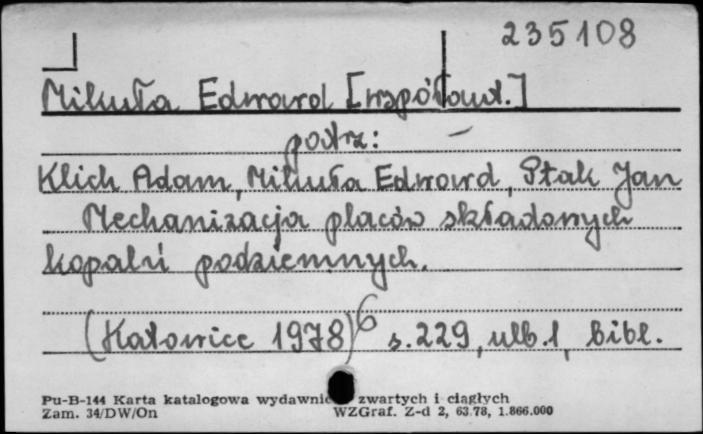 235108
Mikuła Edward [współaut.]
patrz:
Klich Adam, Mikuła Edward, Ptak Jan
Mechanizacja placów składowych
kopalń podziemnych.
(Katowice 1978) 6 s. 229, ulb. 1, bibl.
Pu-B-144 Karta katalogowa wydawnic zwartych i ciągłych
Zam. 34/DW/On WZGraf. Z-d 2, 63.78, 1.866.000